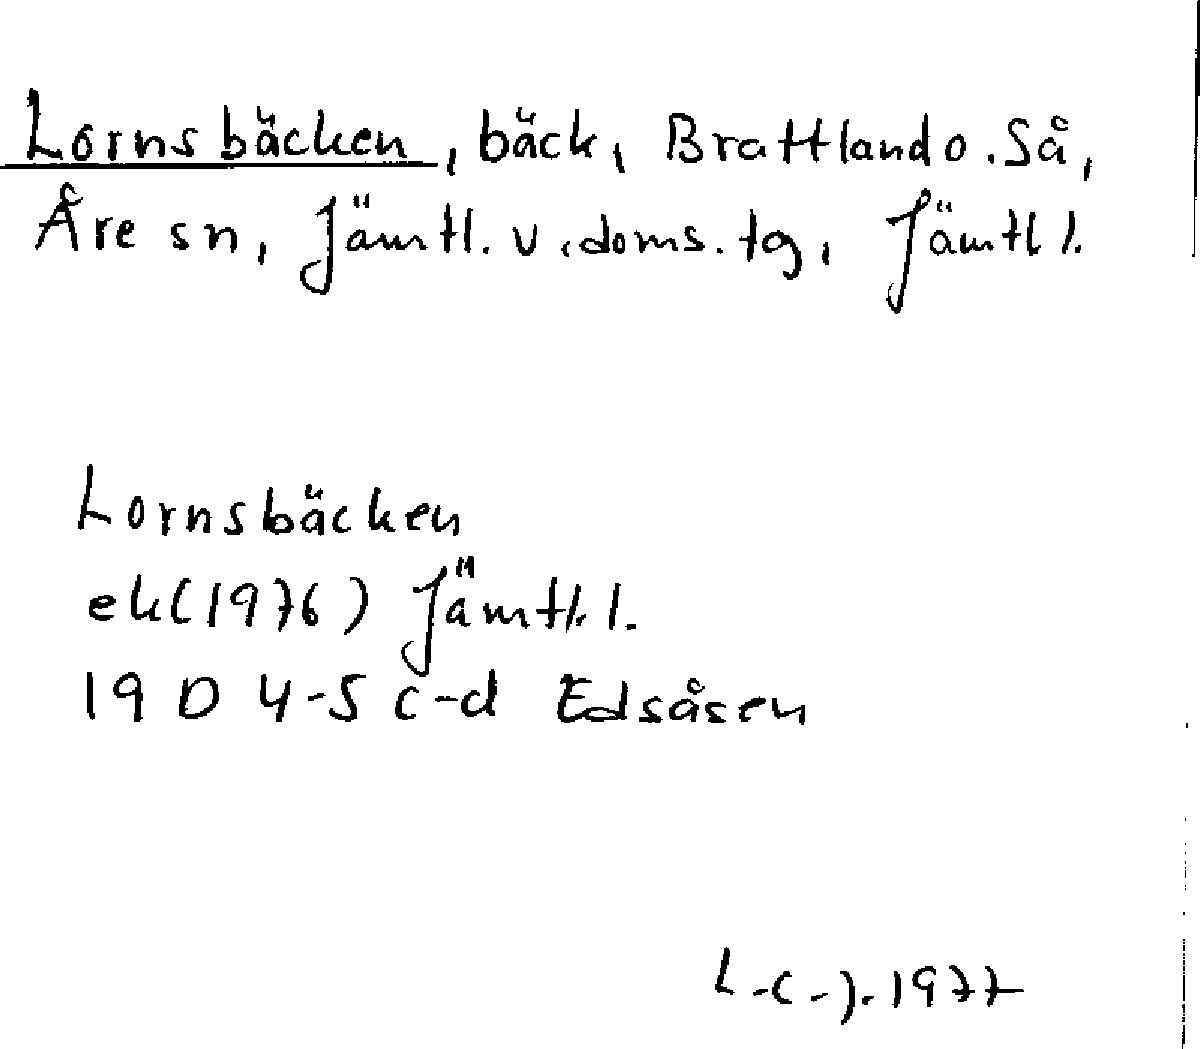 Lornsbäcken, bäck, Brattland o. Så,
Åre sn, Jämtl. v. doms. tg, Jämtl l.
Lornsbäcken
ek(1976) Jämtl. l.
19 D 4-5 c-d Edsåsen
L-C-J. 1977